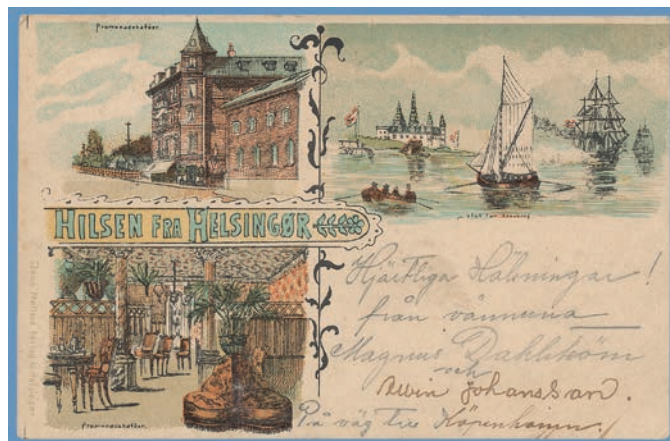 Promenadehotellet
Udsigt fra Kronborg
HILSEN FRA HELSINGØR
Promenadehotellet
Hjärtliga Hälsningar!
från vännerna
Magnus Dahlström
och
Edvin Johansson.
På väg till Köpenhamn!